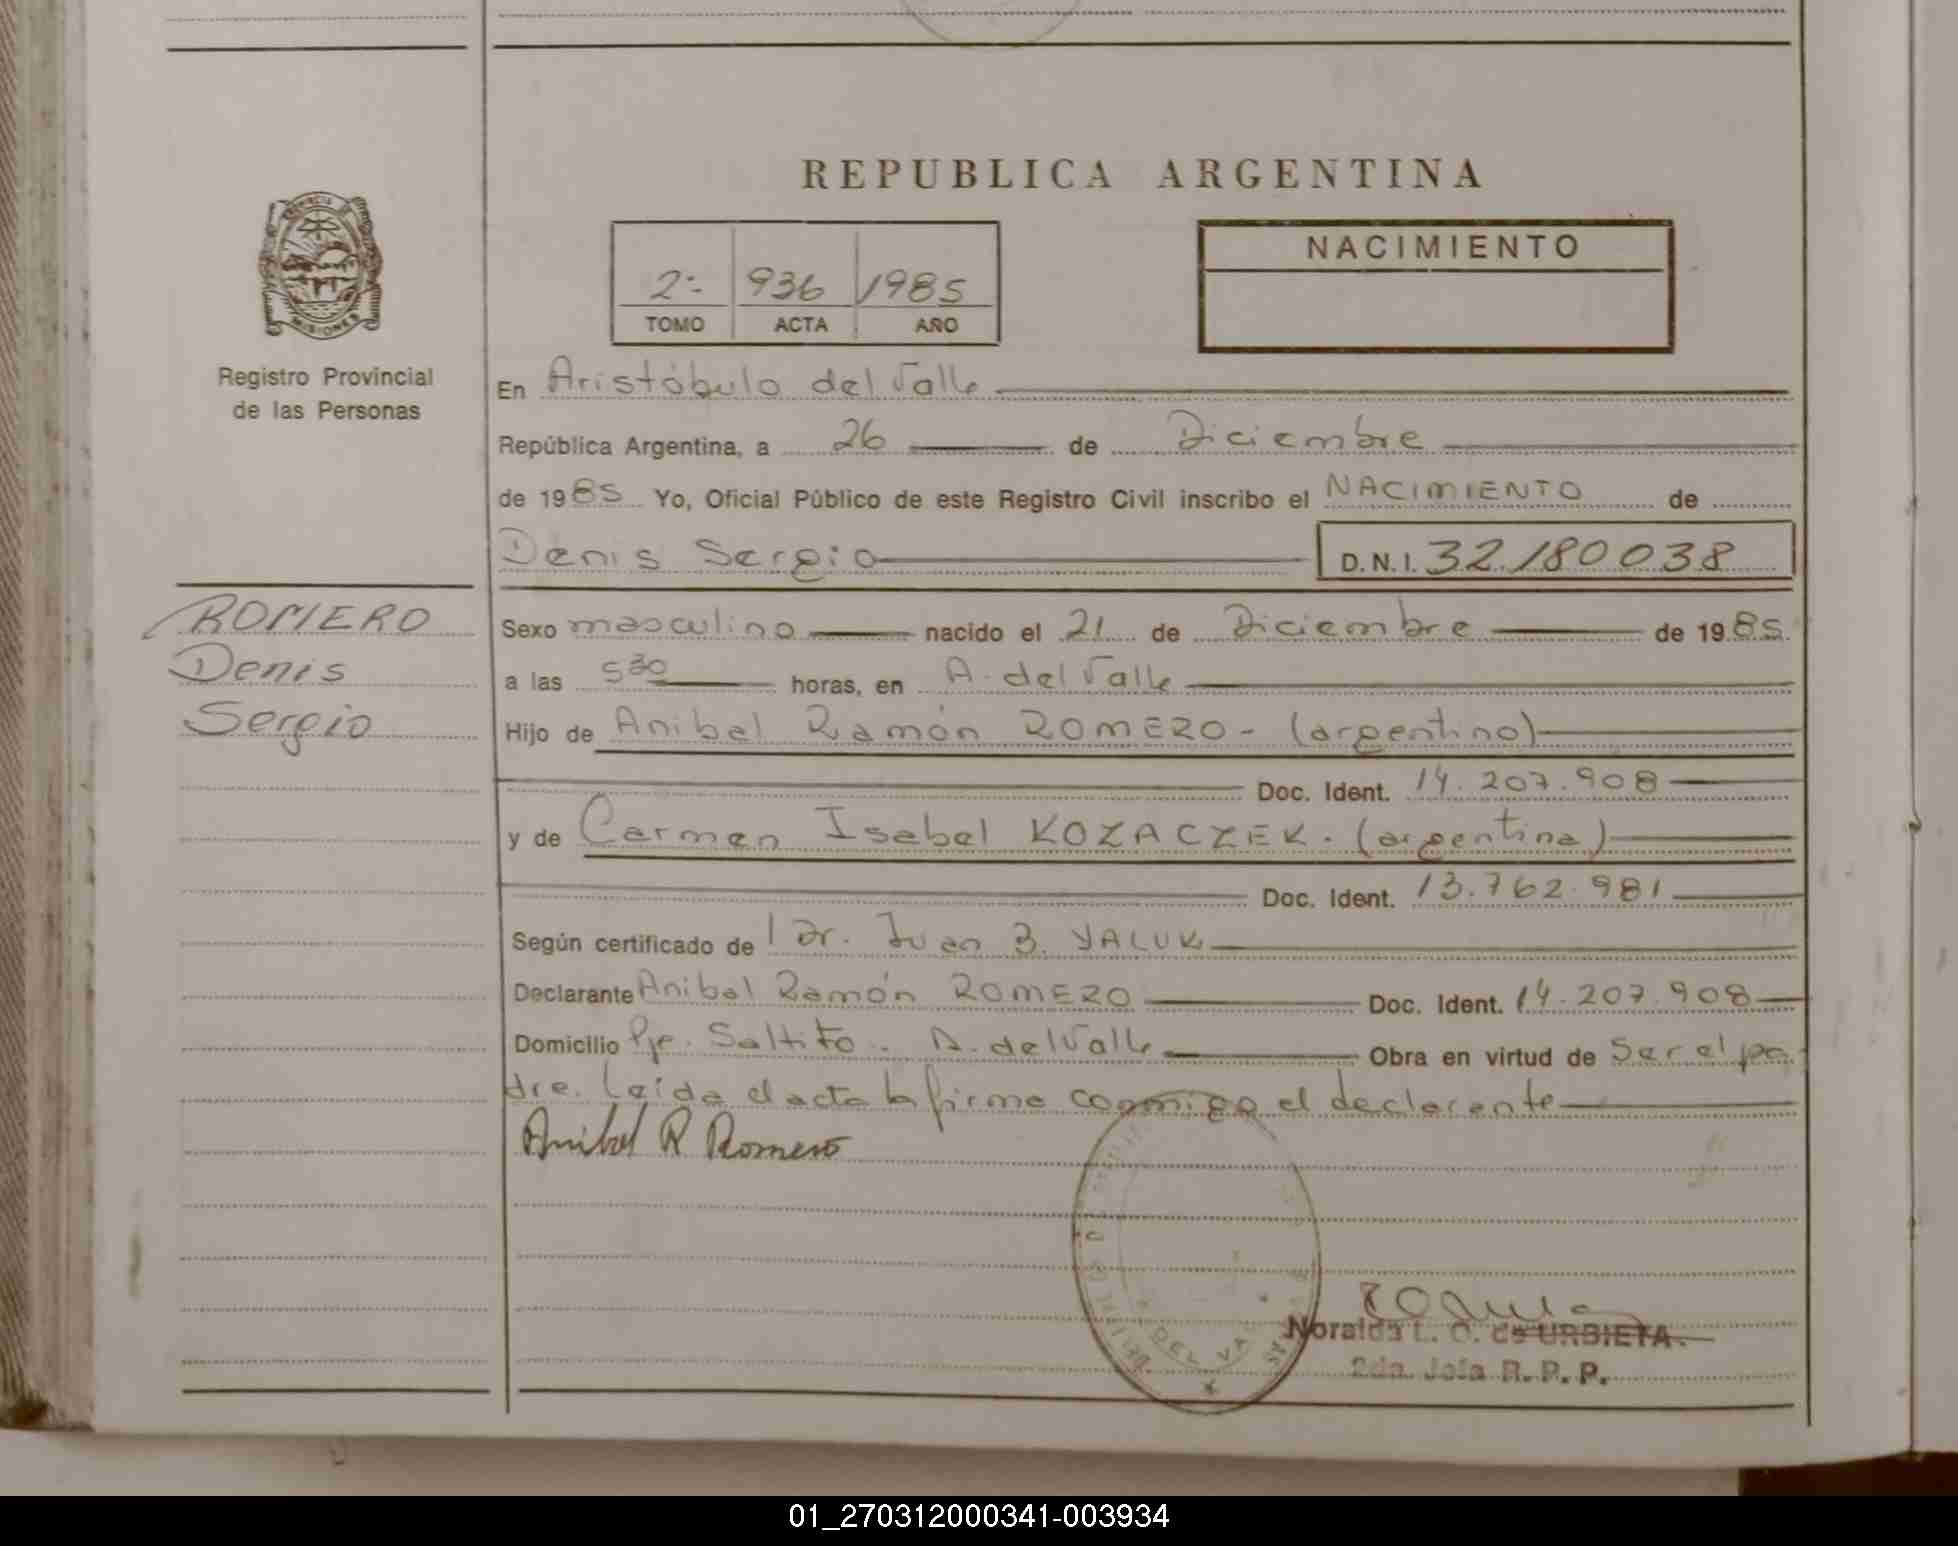 REPUBLICA ARGENTINA
PROVINCIA
MISIONES
Registro Provincial
de las Personas
2º 936 1985
TOMO ACTA AÑO
NACIMIENTO
En Aristóbulo del Valle
República Argentina, a 26 de Diciembre
de 1985 Yo, Oficial Público de este Registro Civil inscribo el NACIMIENTO de
Denis Sergio D.N.I. 32.180038
ROMERO
Denis
Sergio
Sexo masculino nacido el 21 de Diciembre de 1985
a las 5 30 horas, en A. del Valle
Hijo de Anibal Ramón ROMERO - (argentino)
Doc. Ident. 14.207.908
y de Carmen Isabel KOZACZEK. (argentina)
Doc. Ident. 13.762.981
Según certificado de l Dr. Juan B. YALUK
Declarante Anibal Ramón ROMERO Doc. Ident. 14.207.908
Domicilio Pje. Saltito. A. del Valle Obra en virtud de Ser el pa
dre. Leída el acta la firma conmigo el declarante
Anibal R Romero
DEL VA
Noralda L. O. de URBIETA.
2da. Jefa R. P. P.
01_270312000341-003934